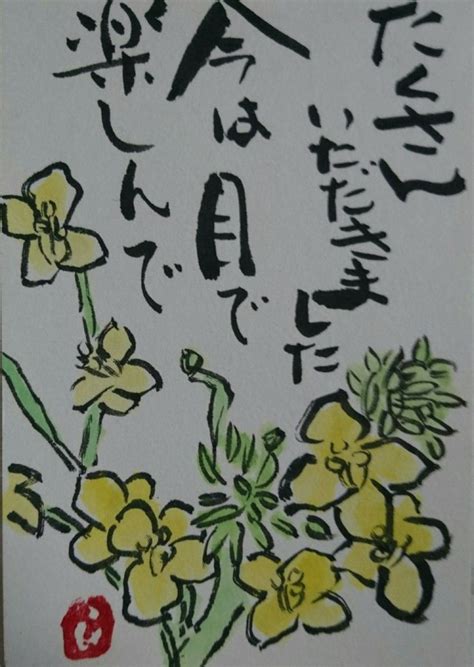 たくさん
いただきました
今は目で
楽しんで